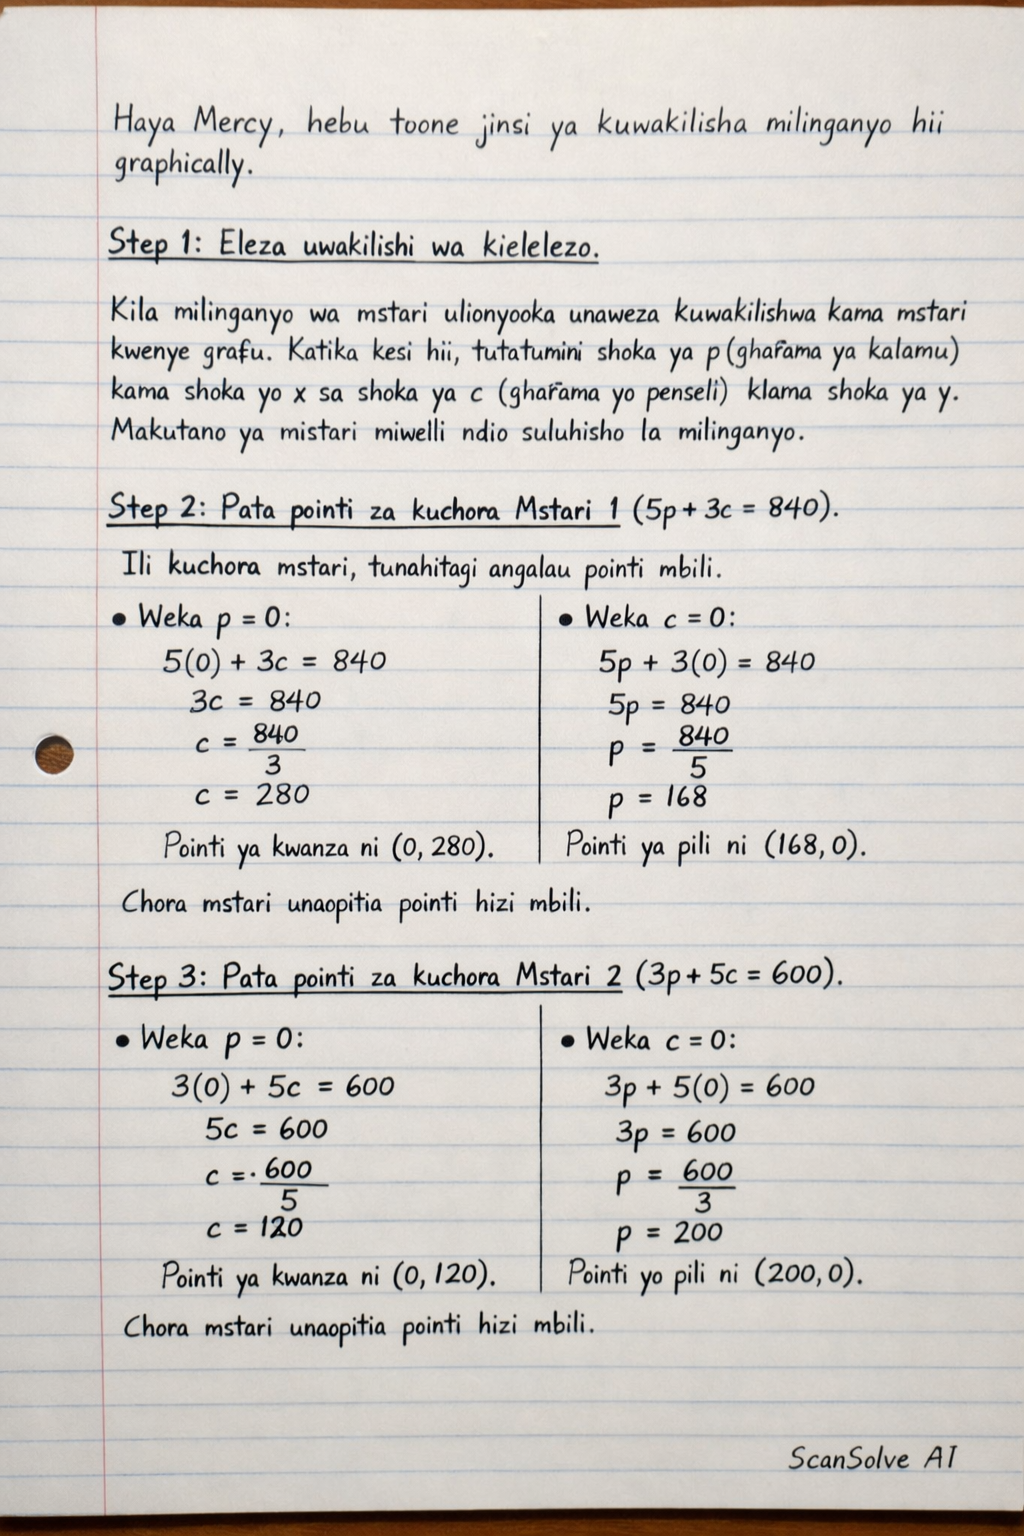 Haya Mercy, hebu toone jinsi ya kuwakilisha milinganyo hii
graphically.
Step 1: Eleza uwakilishi wa kielelezo.
Kila milinganyo wa mstari ulionyooka unaweza kuwakilishwa kama mstari
kwenye grafu. Katika kesi hii, tutatumini shoka ya p (gharama ya kalamu)
kama shoka yo x sa shoka ya c (gharama yo penseli) klama shoka ya y.
Makutano ya mistari miwelli ndio suluhisho la milinganyo.
Step 2: Pata pointi za kuchora Mstari 1 (5p + 3c = 840).
Ili kuchora mstari, tunahitagi angalau pointi mbili.
• Weka p = 0:
5(0) + 3c = 840
3c = 840
c = 840/3
c = 280
Pointi ya kwanza ni (0, 280).
• Weka c = 0:
5p + 3(0) = 840
5p = 840
p = 840/5
p = 168
Pointi ya pili ni (168, 0).
Chora mstari unaopitia pointi hizi mbili.
Step 3: Pata pointi za kuchora Mstari 2 (3p + 5c = 600).
• Weka p = 0:
3(0) + 5c = 600
5c = 600
c =· 600/5
c = 120
Pointi ya kwanza ni (0, 120).
• Weka c = 0:
3p + 5(0) = 600
3p = 600
p = 600/3
p = 200
Pointi yo pili ni (200, 0).
Chora mstari unaopitia pointi hizi mbili.
ScanSolve AI